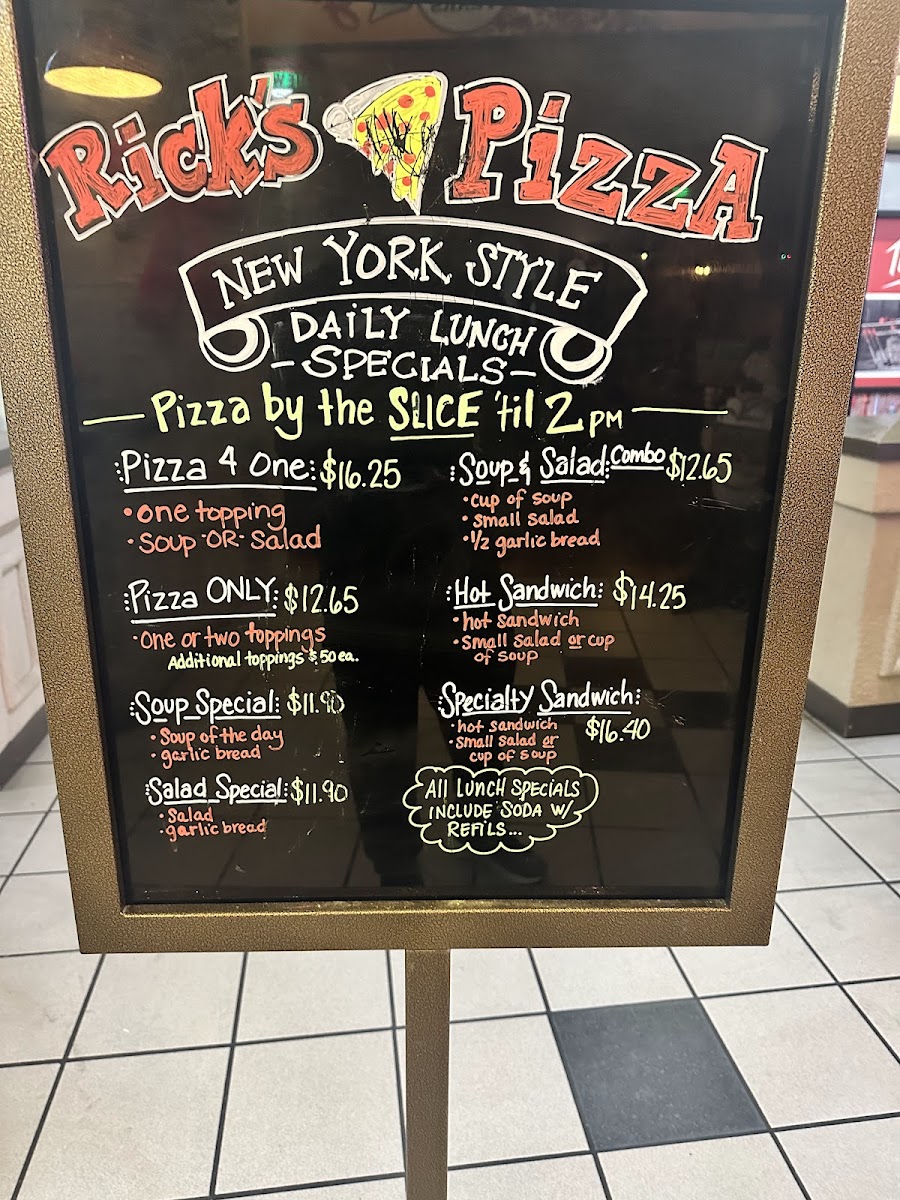 Rick's Pizza
NEW YORK STYLE
DAILY LUNCH
-SPECIALS-
Pizza by the SLICE 'til 2 PM
Pizza 4 One: $16.25
• one topping
• Soup -OR- Salad
Pizza ONLY: $12.65
• One or two toppings
Additional toppings $.50 ea.
Soup Special: $11.90
• Soup of the day
• garlic bread
Salad Special: $11.90
• Salad
• garlic bread
Soup & Salad: Combo $12.65
• cup of soup
• small salad
• 1/2 garlic bread
Hot Sandwich: $14.25
• hot sandwich
• Small salad or cup
of soup
Specialty Sandwich:
• hot sandwich $16.40
• small salad or
cup of soup
All LUNCH SPECIALS
INCLUDE SODA W/
REFILS...